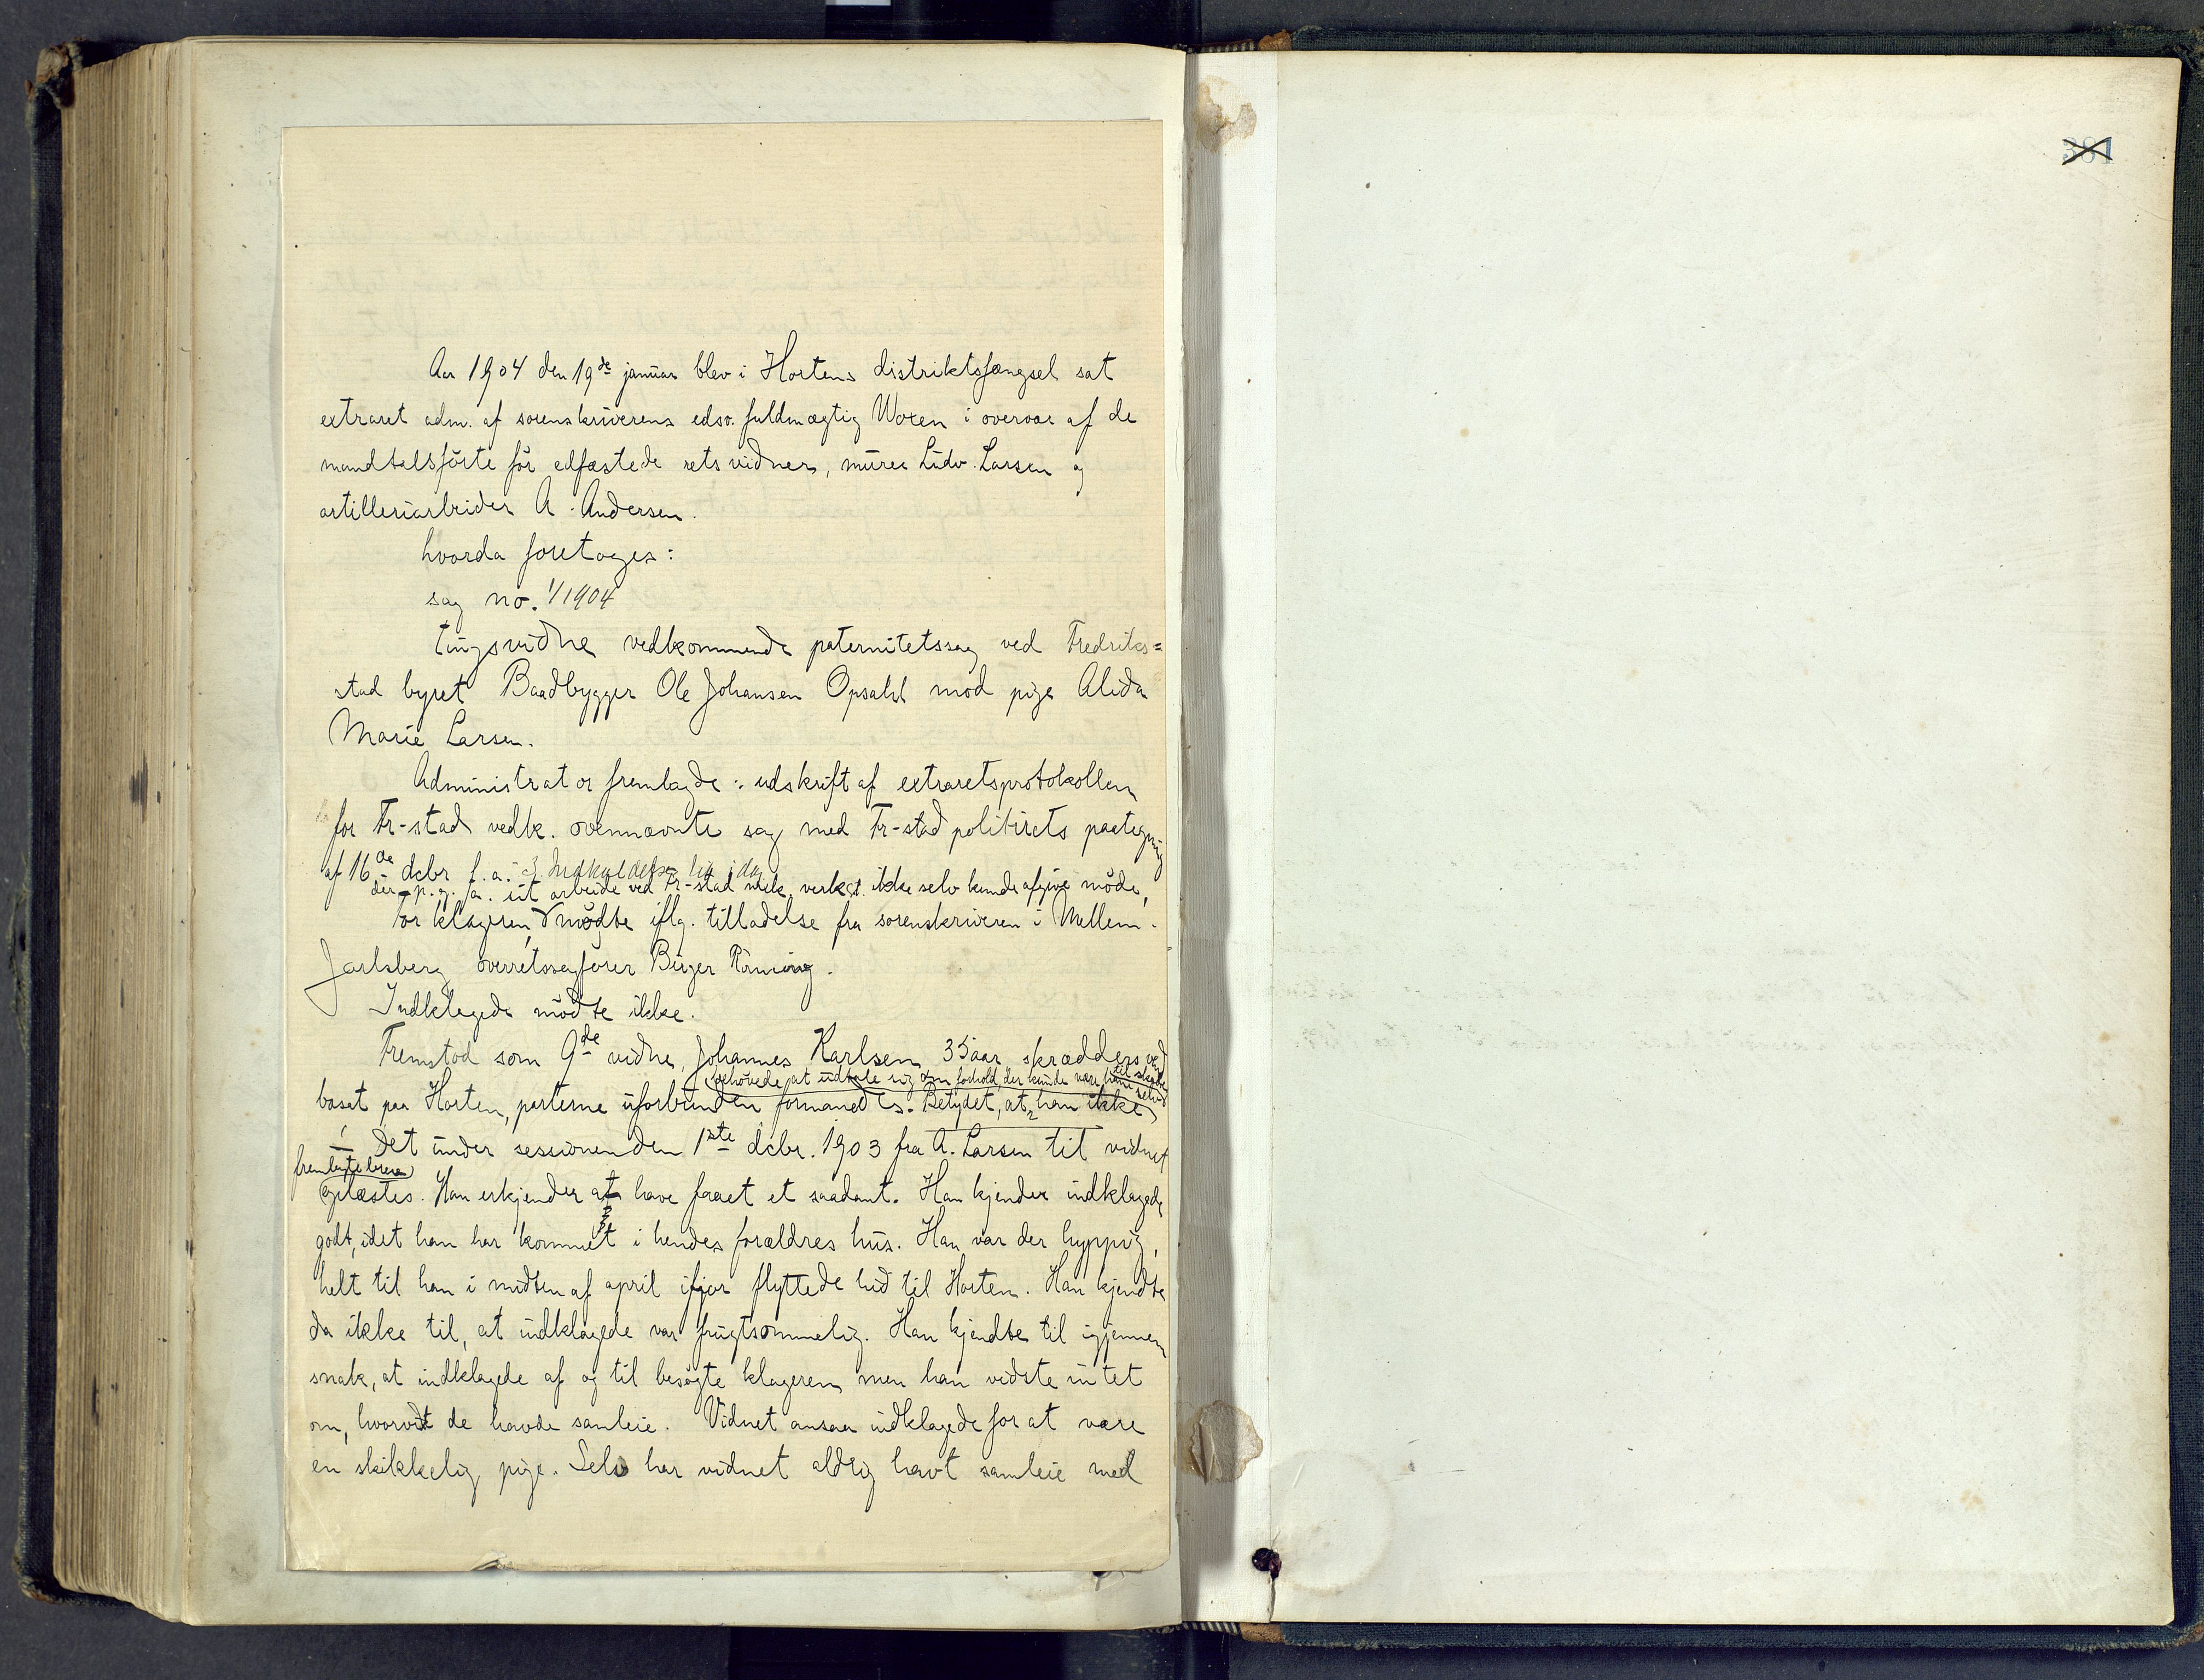 Aar 1904 den 19de januar blev i Hortens distriktsfængsel sat
extraret adm. af sorenskriverens edsv. fuldmægtig Woxen i overvær af de
mandtalsförte för edfæstede retsvidner, murer Ludv. Larsen og
artilleriarbeider A. Andersen.
hvorda foretoges:
sag no. 1/1904
Tingsvidne vedkommende paternitetssag ved Fredriks=
stad byret Baadbygger Ole Johansen Opsahl mod pige Alida
Marie Larsen.
Administrator fremlagde: udskrift af extraretsprotokollen
for Fr-stad vedk. ovennævnte sag med Fr-stad politirets paategning
af 16de dcbr f.a.
der p.g.a. sit arbeide ved Fr-stad mek. verksted ikke selv kunde afgive möde,
For klageren, mödte iflg. tilladelse fra sorenskriveren i Mellem-
Jarlsberg overretssagförer Birger
Indklagede mödte ikke.
Fremstod som 9de vidne, Johannes Karlsen 35 aar skrædders ved
behövede at udtale sig om forhold, der kunde være ham til skade
bosat paa Horten, parterne uforbunden formanedes. Betydet, at han ikke
Det under sessionen den 1ste dcbr. 1903 fra A. Larsen til vidnet
fremlagte
oplæstes. Han erkjender at have faaet et saadant. Han kjender indklagede
godt, idet han har kommet i hendes forældres hus. Han var der hyppig,
helt til han i midten af april ifjor flyttede hid til Horten. Han kjendte
da ikke til, at indklagede var frugtsommelig. Han kjendte til igjennem
snak, at indklagede af og til besögte klageren, men han vidste intet
om, hvorvidt de havde samleie. Vidnet ansaa indklagede for at være
en skikkelig pige. Selv har vidnet aldrig havt samleie med
381